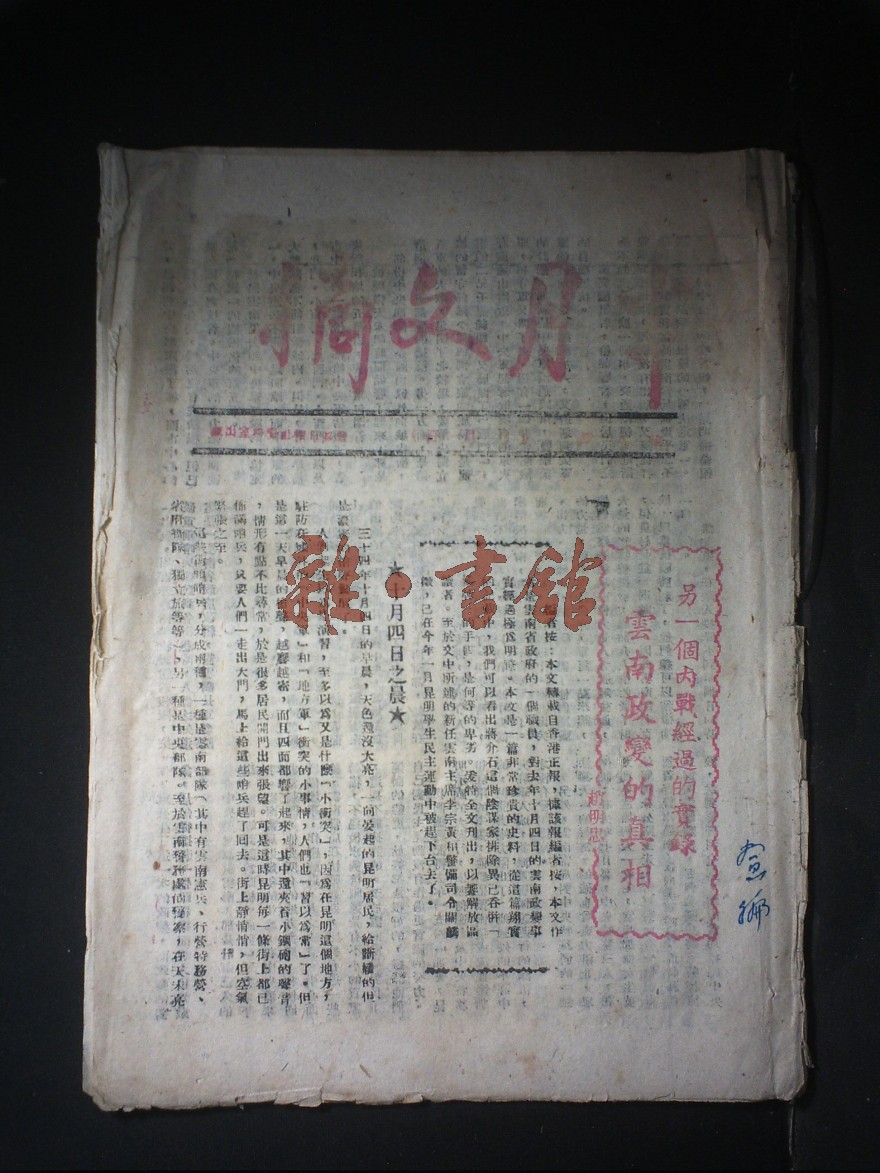 文摘
月
另一個內戰經過的實錄
雲南政變的真相
趙明忠
編者按:本文轉載自香港正報,據該報編者按,本文作
雲南省政府的一個職員,對去年十月四日的雲南政變事
實經過極為明瞭。本文是一篇非常珍貴的史料,從這篇翔實
中,我們可以看出蔣介石這個陰謀家排除異己吞併「
手段,是何等的卑劣。爰特全文刊出,以饗解放區
讀者。至於文中所述的新任雲南主席李宗黃和警備司令關麟
徵,已在今年一月昆明學生民主運動中被趕下台去了。
★十月四日之晨★
三十四年十月四日的早晨,天色還沒大亮,一向晏起的昆明居民,給斷續的但
是濃
演習,至多以為又是什麼「小衝突」,因為在昆明這個地方,
駐防在 軍」和「地方軍」衝突的小事情,人們也「習以為常」了。但
是第一天早晨的 聲,越響越密,而且四面都響了起來,其中還夾着小鋼砲的聲音
,情形有點不比尋常,於是很多居民開門出來張望。可是這時昆明每一條街上都已
佈滿哨兵,只要人們一走出大門,馬上給這些哨兵趕了回去。街上靜悄悄,但空氣
緊張之至。
這些街頭哨兵,分成兩種,一種是雲南部隊(其中有雲南憲兵、行營特務營、
省府衛隊、獨立旅等等),另一種是中央部隊。至於雲南警務處的警察,在天未亮
雜·書館